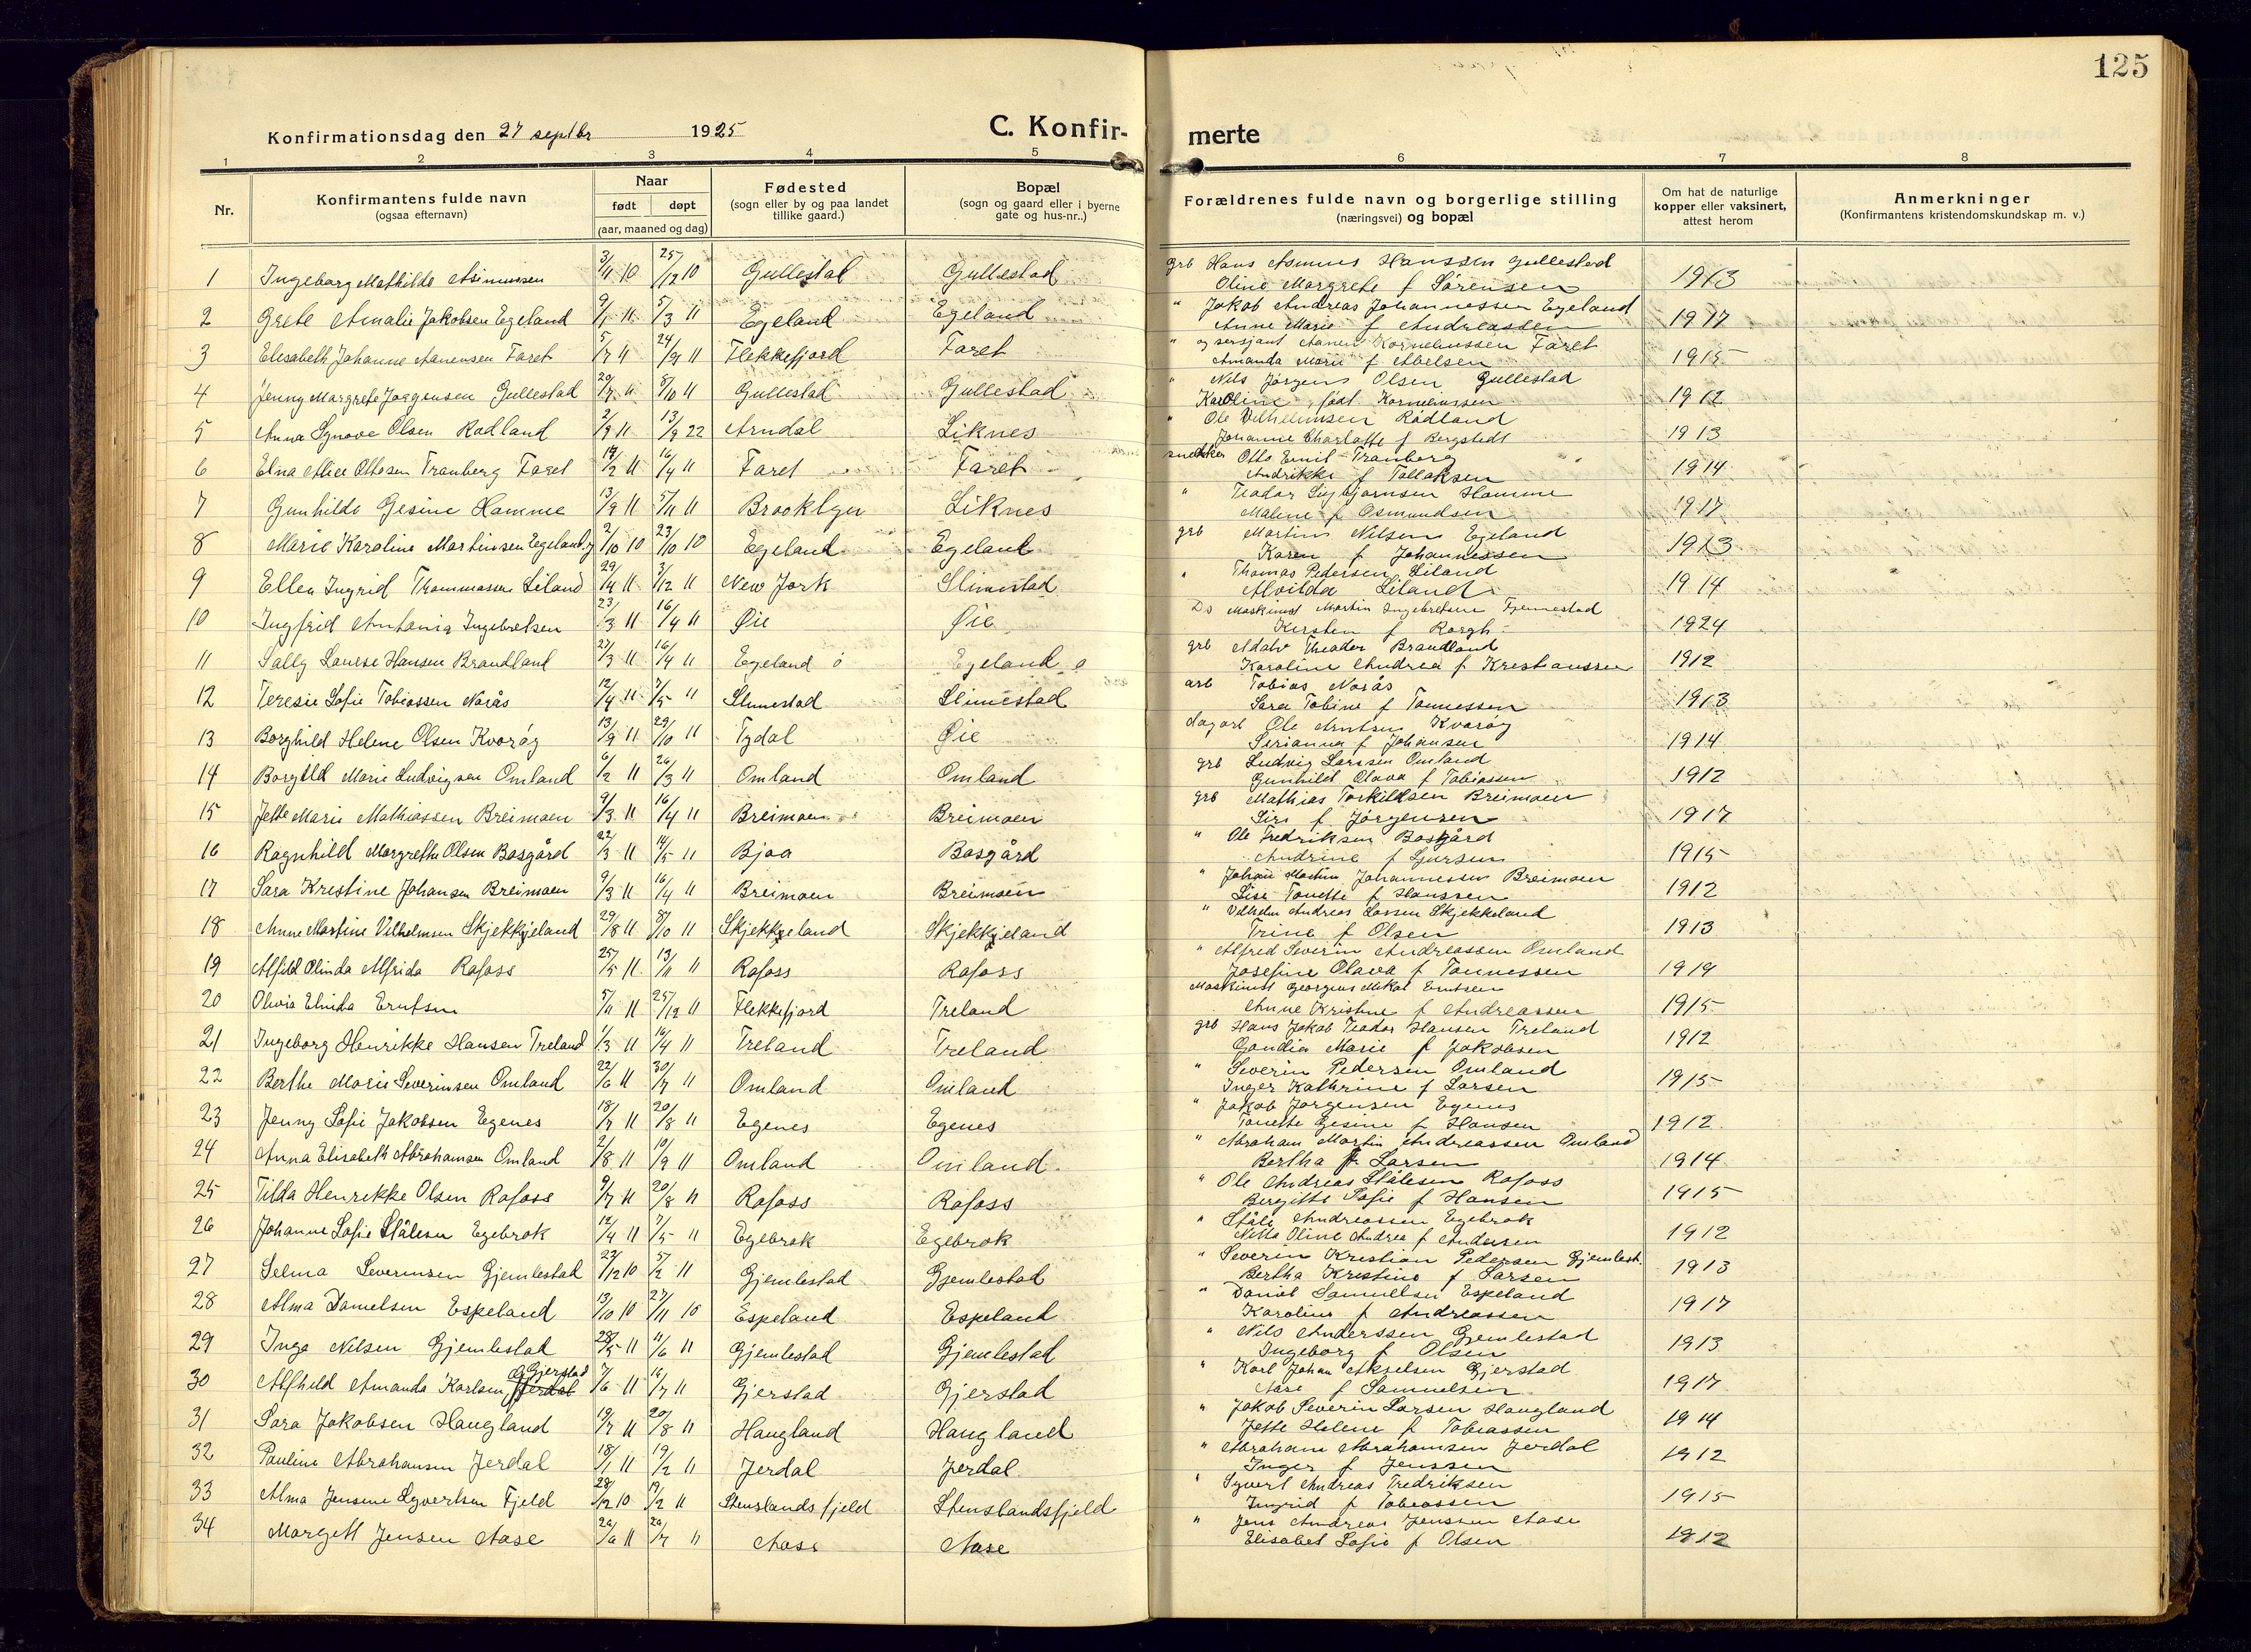 125
Konfirmationsdag den 27 septbr 1925
C. Konfir-
merte
1 2 3 4 5 6 7 8
Nr.
Konfirmantens fulde navn
(ogsaa efternavn)
Naar
født døpt
(aar, maaned og dag)
Fødested
(sogn eller by og paa landet
tillike gaard.)
Bopæl
(sogn og gaard eller i byerne
gate og hus-nr..)
Forældrenes fulde navn og borgerlige stilling
(næringsvei) og bopæl
Om hat de naturlige
kopper eller vaksinert,
attest herom
Anmerkninger
(Konfirmantens kristendomskundskap m. v.)
1 Ingeborg Mathilde Asimussen 3/11 10 25/12 10 Gullestad Gullestad grb Hans Asmus Hanssen Gullestad 1913
Oline Margrete f Sørensen
2 Grete Amalie Jakobsen Egeland 9/1 11 5/3 11 Egeland Egeland " Jakob Andreas Johannessen Egeland 1917
Anne Marie f Andreassen
3 Elisabeth Johanne Aanensen Faret 5/7 11 24/9 11 Flekkefjord Faret " og sersjant Aanen Kornelinssen Faret 1915
Amanda Marie f Abelsen
4 Jenny Margrete Jørgensen Gullestad 20/9 11 8/10 11 Gullestad Gullestad " Nils Jørgens Olsen Gullestad 1912
Karoline født Korneliussen
5 Anna Synove Olsen Rødland 2/9 11 13/9 22 Arndal Liknes " Ole Vilhelmsen Rødland 1913
Johanne Charlotte f Bergstedt
6 Elna Alice Ottosen Tranberg Faret 19/2 11 16/4 11 Faret Faret snekker Otto Emil Tranberg 1914
Andrikke f Tallaksen
7 Gunhilde Gesine Hamme 13/9 11 5/11 11 Brooklyn Liknes " Teador Sigbjørnsen Hamme 1917
Malene f Osmundsen
8 Marie Karoline Martinsen Egeland 2/10 10 23/10 10 Egeland Egeland grb Martin Nilsen Egeland 1913
Karen f Johannessen
9 Ellen Ingrid Thommassen Liland 29/4 11 3/12 11 New Jork Slimestad " Thomas Pedersen Liland 1914
Alvilda Liland
10 Ingfrid Antonia Ingebretsen 23/3 11 16/4 11 Øie Øie Ds Maskinist Martin Ingebretsen Fjennestad 1924
Kirsten f Borgh
11 Sally Lovise Hansen Brandland 27/3 11 16/4 11 Egeland ø Egeland ø grb Adalv Theodor Brandland 1912
Karoline Andrea f Kristianssen
12 Teresie Sofie Tobiassen Norås 12/4 11 7/5 11 Slimestad Slimestad arb Tobias Norås 1913
Sara Tobine f Tønnessen
13 Borghild Helene Olsen Kvorøy 13/9 11 29/10 11 Tydal Øie dagarb Ole Arntsen Kvarøy 1914
Serianna f Johansen
14 Borgild Marie Ludvigsen Omland 6/2 11 26/3 11 Omland Omland grb Ludvig Larssen Omland 1912
Gunhild Olava f Tobiassen
15 Jette Marie Mathiassen Breimoen 9/3 11 16/4 11 Breimoen Breimoen grb Mathias Torkildsen Breimoen 1917
Siri f Jørgensen
16 Ragnhild Margrethe Olsen Bosgård 22/3 11 14/5 11 Bjoa Bosgård " Ole Fredriksen Bosgård 1915
Andrine f Sjursen
17 Sara Kristine Johansen Breimoen 9/3 11 16/4 11 Breimoen Breimoen " Johan Martin Johannessen Breimoen 1912
Lise Tonette f Hanssen
18 Anne Martine Vilhelmsen Skjekkjeland 29/8 11 8/10 11 Skjekkjeland Skjekkjeland " Vilhelm Andreas Larsen Skjekkeland 1913
Trine f Olsen
19 Alfild Olinda Alfrida Rafoss 25/5 11 13/11 11 Rafoss Rafoss " Alfred Severin Andreassen Omland 1919
Josefine Olava f Tønnessen
20 Olivia Elvida Erntsen 5/11 11 25/12 11 Flekkefjord Treland Maskinist Georgius Mikal Erntsen 1915
Anne Kristine f Andreassen
21 Ingeborg Henrikke Hansen Treland 1/3 11 16/4 11 Treland Treland grb Hans Jakob Teador Hansen Treland 1912
Gondia Marie f Jakobsen
22 Berthe Marie Severinsen Omland 22/6 11 30/7 11 Omland Omland " Severin Pedersen Omland 1915
Inger Kathrine f Larsen
23 Jenny Sofie Jakobsen Egenes 18/7 11 20/8 11 Egenes Egenes " Jakob Jørgensen Egenes 1912
Tonette Gesine f Hansen
24 Anna Elisabeth Abrahamsen Omland 2/8 11 10/9 11 Omland Omland " Abraham Martin Andreassen Omland 1914
Bertha f Larsen
25 Tilda Henrikke Olsen Rafoss 9/7 11 20/8 11 Rafoss Rafoss " Ole Andreas Stålesen Rafoss 1915
Birgitte Sofie f Hansen
26 Johanne Sofie Stålesen Egebrok 12/4 11 7/5 11 Egebrok Egebrok " Ståle Andreassen Egebrok 1912
Nilla Oline Andrea f Andersen
27 Selma Severinsen Gjemlestad 27/12 10 5/2 11 Gjemlestad Gjemlestad " Severin Kristian Pedersen Gjemlest. 1913
Bertha Kristine f Larsen
28 Alma Danielsen Espeland 13/10 10 27/11 10 Espeland Espeland " Daniel Samuelsen Espeland 1917
Karoline f Andreassen
29 Inga Nilsen Gjemlestad 28/5 11 11/6 11 Gjemlestad Gjemlestad " Nils Anderssen Gjemlestad 1913
Ingeborg f Olsen
30 Alfhild Amanda Karlsen Gjerstad 7/6 11 16/7 11 Gjerstad Gjerstad " Karl Johan Akselsen Gjerstad 1917
Aase f Samuelsen
31 Sara Jakobsen Haugland 19/7 11 20/8 11 Haugland Haugland " Jakob Severin Larsen Haugland 1914
Jette Helene f Tobiassen
32 Pauline Abrahamsen Jerdal 18/1 11 19/2 11 Jerdal Jerdal " Abraham Abrahamsen Jerdal 1912
Inger f Jenssen
33 Alma Jensine Syvertsen Fjeld 28/12 10 19/2 11 Stenslandsfjeld Stenslandsfjeld " Syvert Andreas Fredriksen 1915
Ingrid f Tobiassen
34 Margett Jensen Aase 29/6 11 29/7 11 Aase Aase " Jens Andreas Jenssen Aase 1912
Elisabet Sofie f Olsen